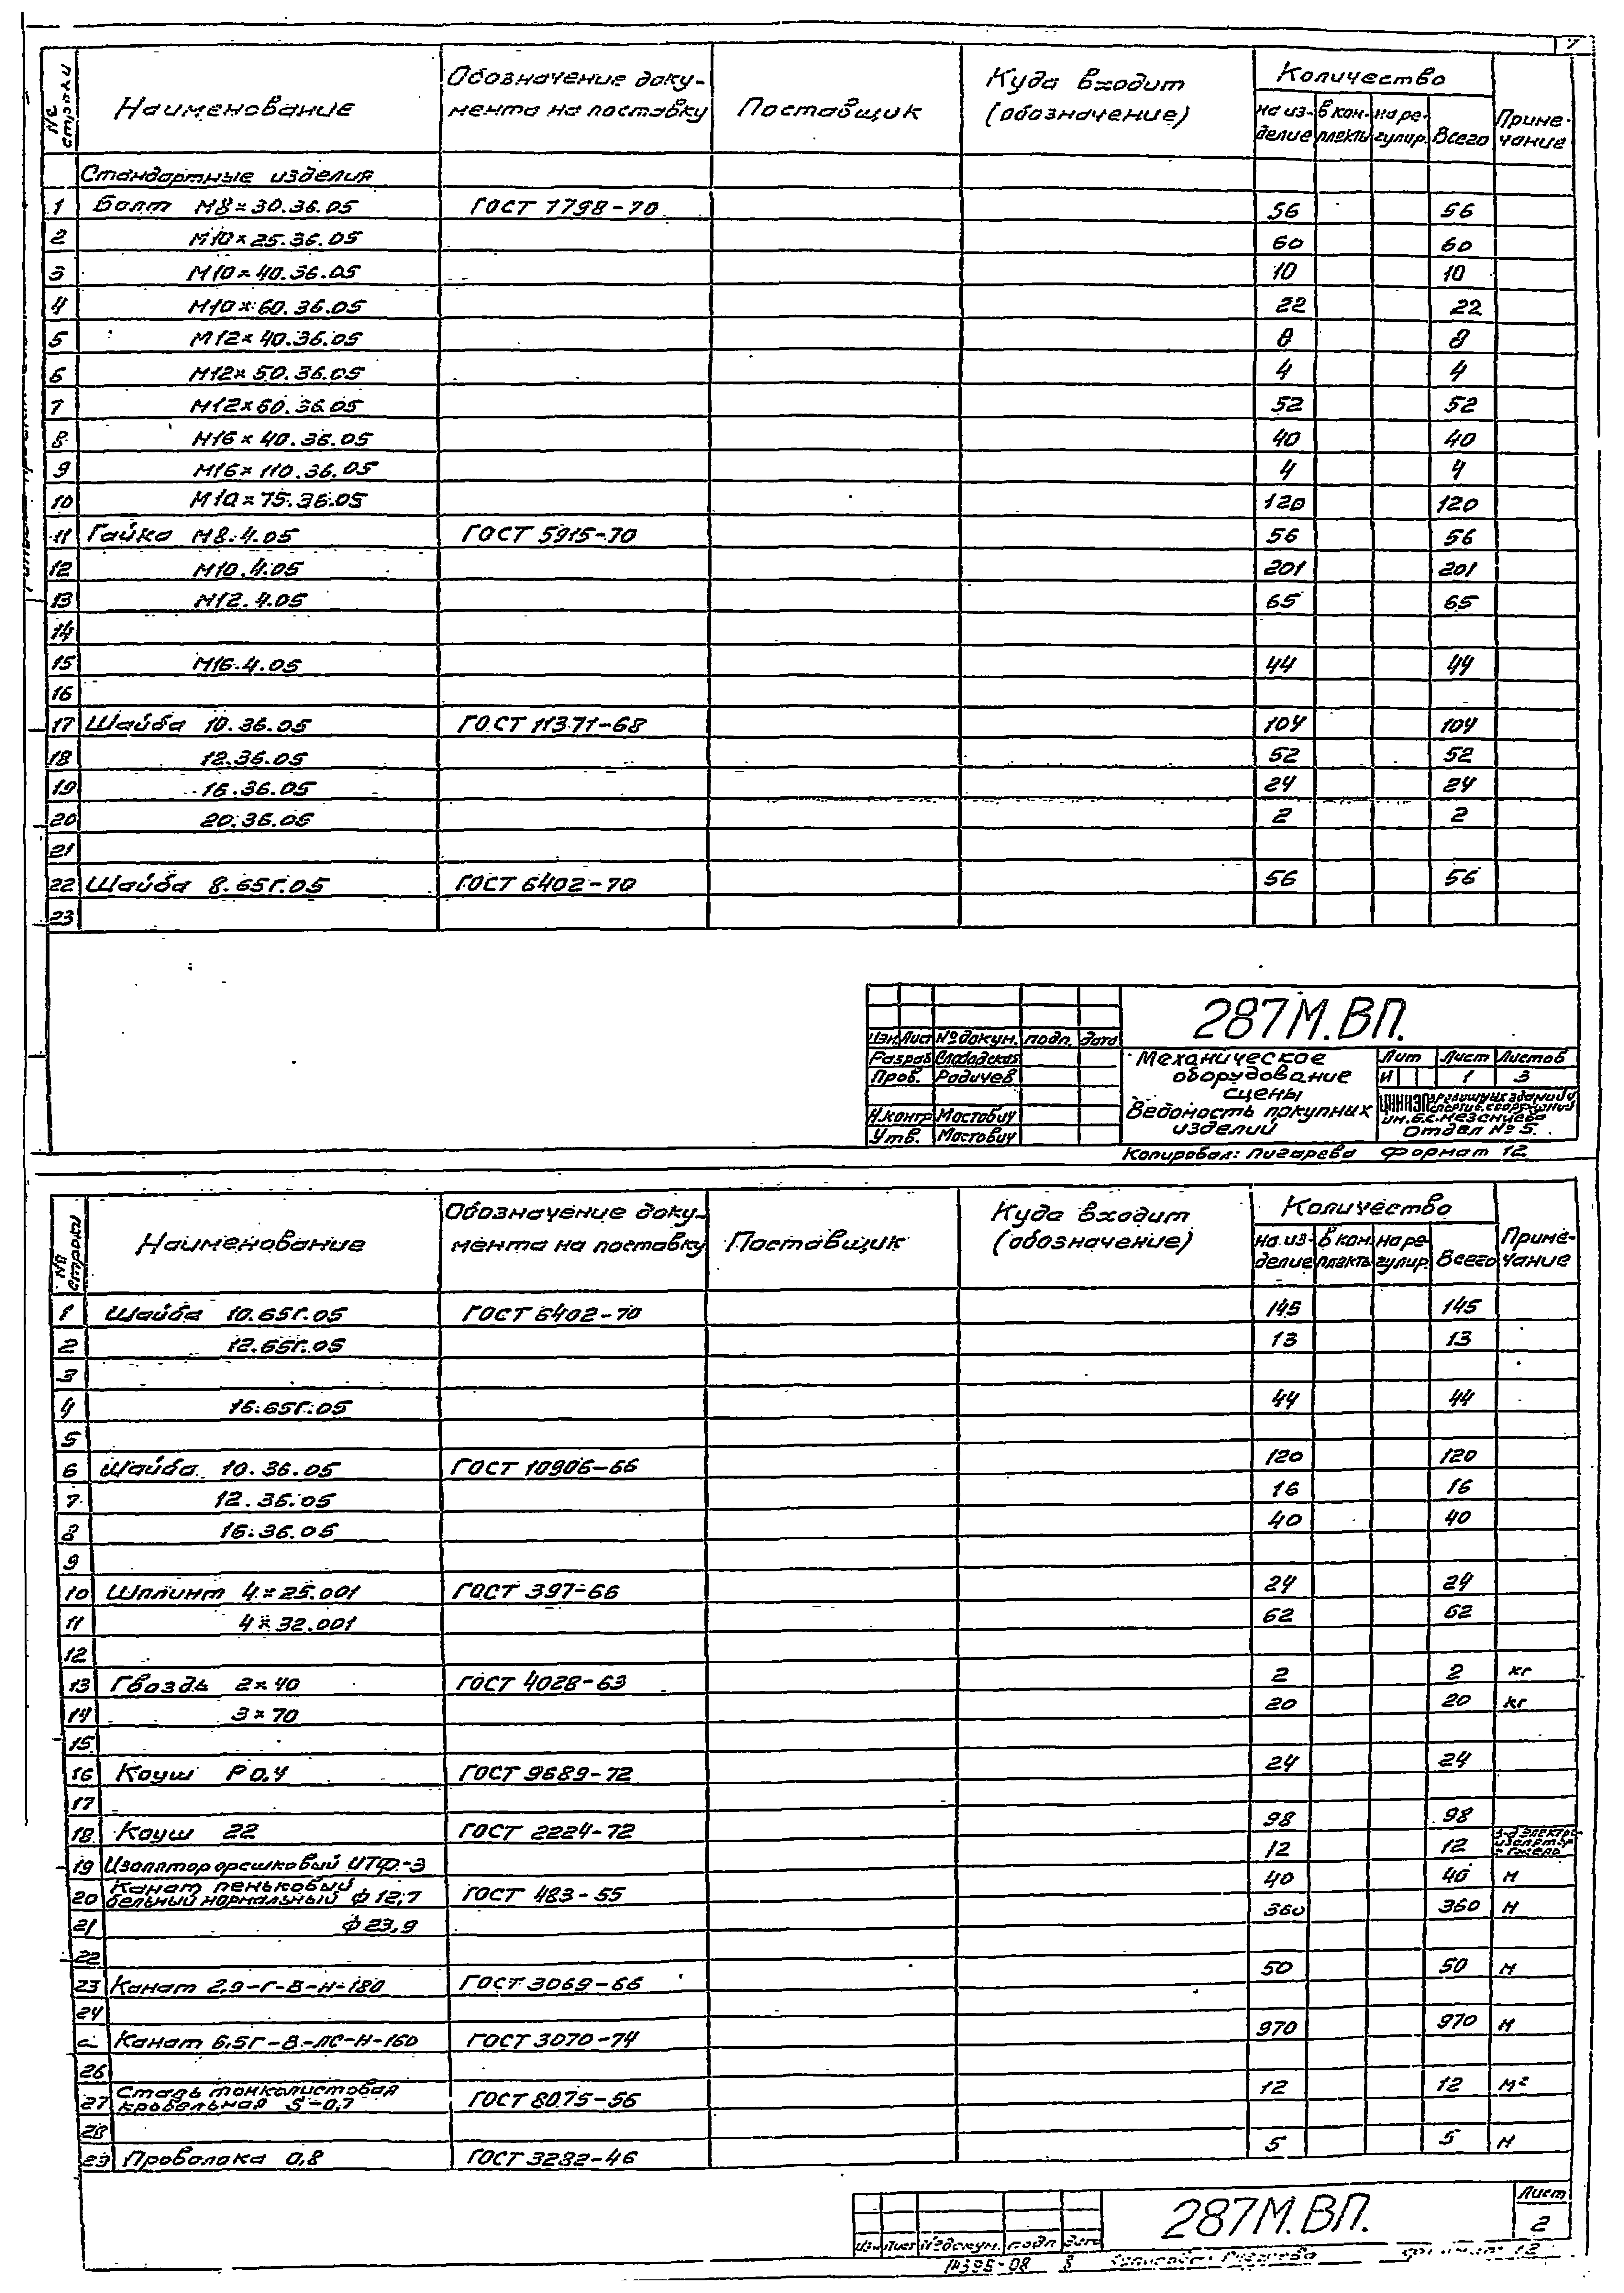 7
№ строки Наименование Обозначение доку-мента на поставку Поставщик Куда входит (обозначение) Количество на из-делие в ком-плекты на ре-гулир. Всего Приме-чание
Стандартные изделия
1 Болт М8×30.36.05 ГОСТ 7798-70 56 56
2 М10×25.36.05 60 60
3 М10×40.36.05 10 10
4 М10×60.36.05 22 22
5 М12×40.36.05 8 8
6 М12×50.36.05 4 4
7 М12×60.36.05 52 52
8 М16×40.36.05 40 40
9 М16×110.36.05 4 4
10 М10×75.36.05 120 120
11 Гайка М8.4.05 ГОСТ 5915-70 56 56
12 М10.4.05 201 201
13 М12.4.05 65 65
14
15 М16.4.05 44 44
16
17 Шайба 10.36.05 ГОСТ 11371-68 104 104
18 12.36.05 52 52
19 16.36.05 24 24
20 20.36.05 2 2
21
22 Шайба 8.65Г.05 ГОСТ 6402-70 56 56
23
287М.ВП.
Изм. Лист № докум. подп. дата
Разраб Слободская
Пров. Родичев
Н.контр Мостович
Утв. Мостович
Механическое
оборудование
сцены
Ведомость покупных
изделий
Лит Лист Листов
И 1 3
ЦНИИЭП зрелищных зданий и
спортив. сооружений
им. Б.С. Мезенцева
Отдел № 5.
Копировал: Пигарева Формат 12
№ строки Наименование Обозначение доку-мента на поставку Поставщик Куда входит (обозначение) Количество на из-делие в ком-плекты на ре-гулир. Всего Приме-чание
1 Шайба 10.65Г.05 ГОСТ 6402-70 145 145
2 12.65Г.05 13 13
3
4 16.65Г.05 44 44
5
6 Шайба 10.36.05 ГОСТ 10906-66 120 120
7 12.36.05 16 16
8 16.36.05 40 40
9
10 Шплинт 4×25.001 ГОСТ 397-66 24 24
11 4×32.001 62 62
12
13 Гвоздь 2×40 ГОСТ 4028-63 2 2 кг
14 3×70 20 20 кг
15
16 Коуш Р0,4 ГОСТ 9689-72 24 24
17
18 Коуш 22 ГОСТ 2224-72 98 98
19 Изолятор орешковый ИТФ-3 12 12
20 Канат пеньковый бельный нормальный ф 12,7 ГОСТ 483-55 40 40 м
21 ф 23,9 360 360 м
22
23 Канат 2,9-Г-В-Н-180 ГОСТ 3069-66 50 50 м
24
Канат 6,5Г-В-ЛС-Н-160 ГОСТ 3070-74 970 970 м
26
27 Сталь тонколистовая кровельная S-0,7 ГОСТ 8075-56 12 12 м²
28
29 Проволока 0,8 ГОСТ 3282-46 5 5 м
287М.ВП.
Лист
2
Изм Лист № докум. подп Дата
14395-08 8 Копировал: Пигарева Формат 12